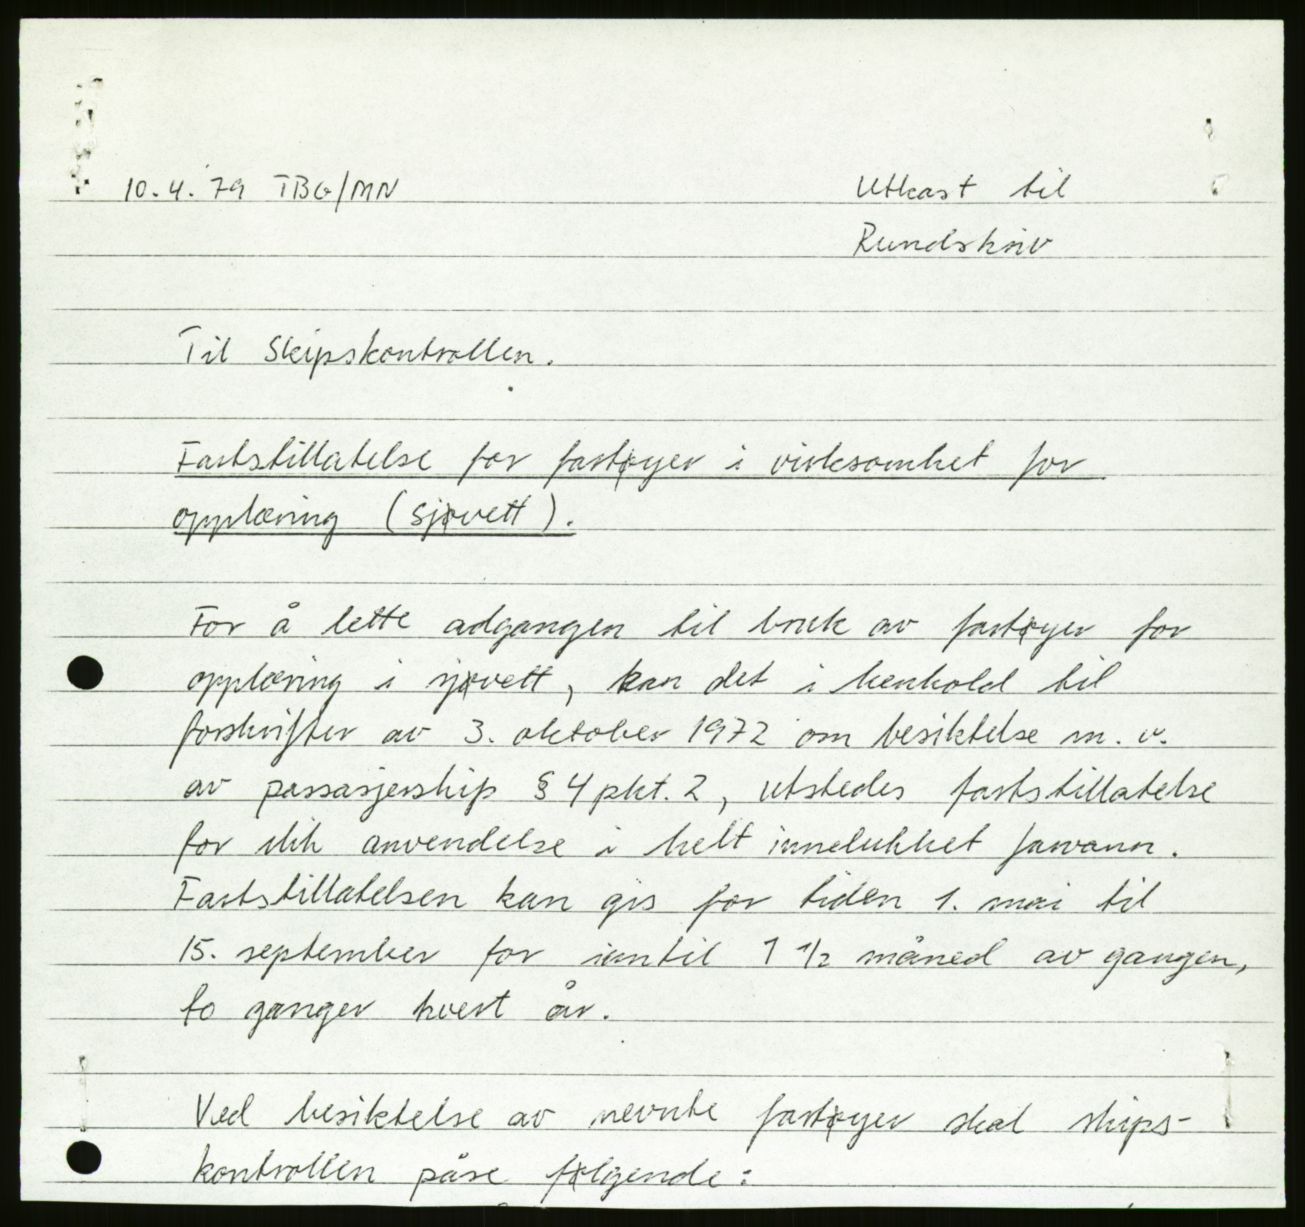 10.4.79 TBG/MN
Utkast til
Rundskriv
Til Skipskontrollen.
Fartstillatelse for fartøyer i virksomhet for
opplæring (sjøvett).
For å lette adgangen til bruk av fartøyer for
opplæring i sjøvett, kan det i henhold til
forskrifter av 3. oktober 1972 om besiktelse m.v.
av passasjerskip § 4 pkt. 2, utstedes fartstillatelse
for slik anvendelse i helt innelukket farvann.
Fartstillatelsen kan gis for tiden 1. mai til
15. september for inntil 1 1/2 måned av gangen,
to ganger hvert år.
Ved besiktelse av nevnte fartøyer skal skips-
kontrollen påse følgende: